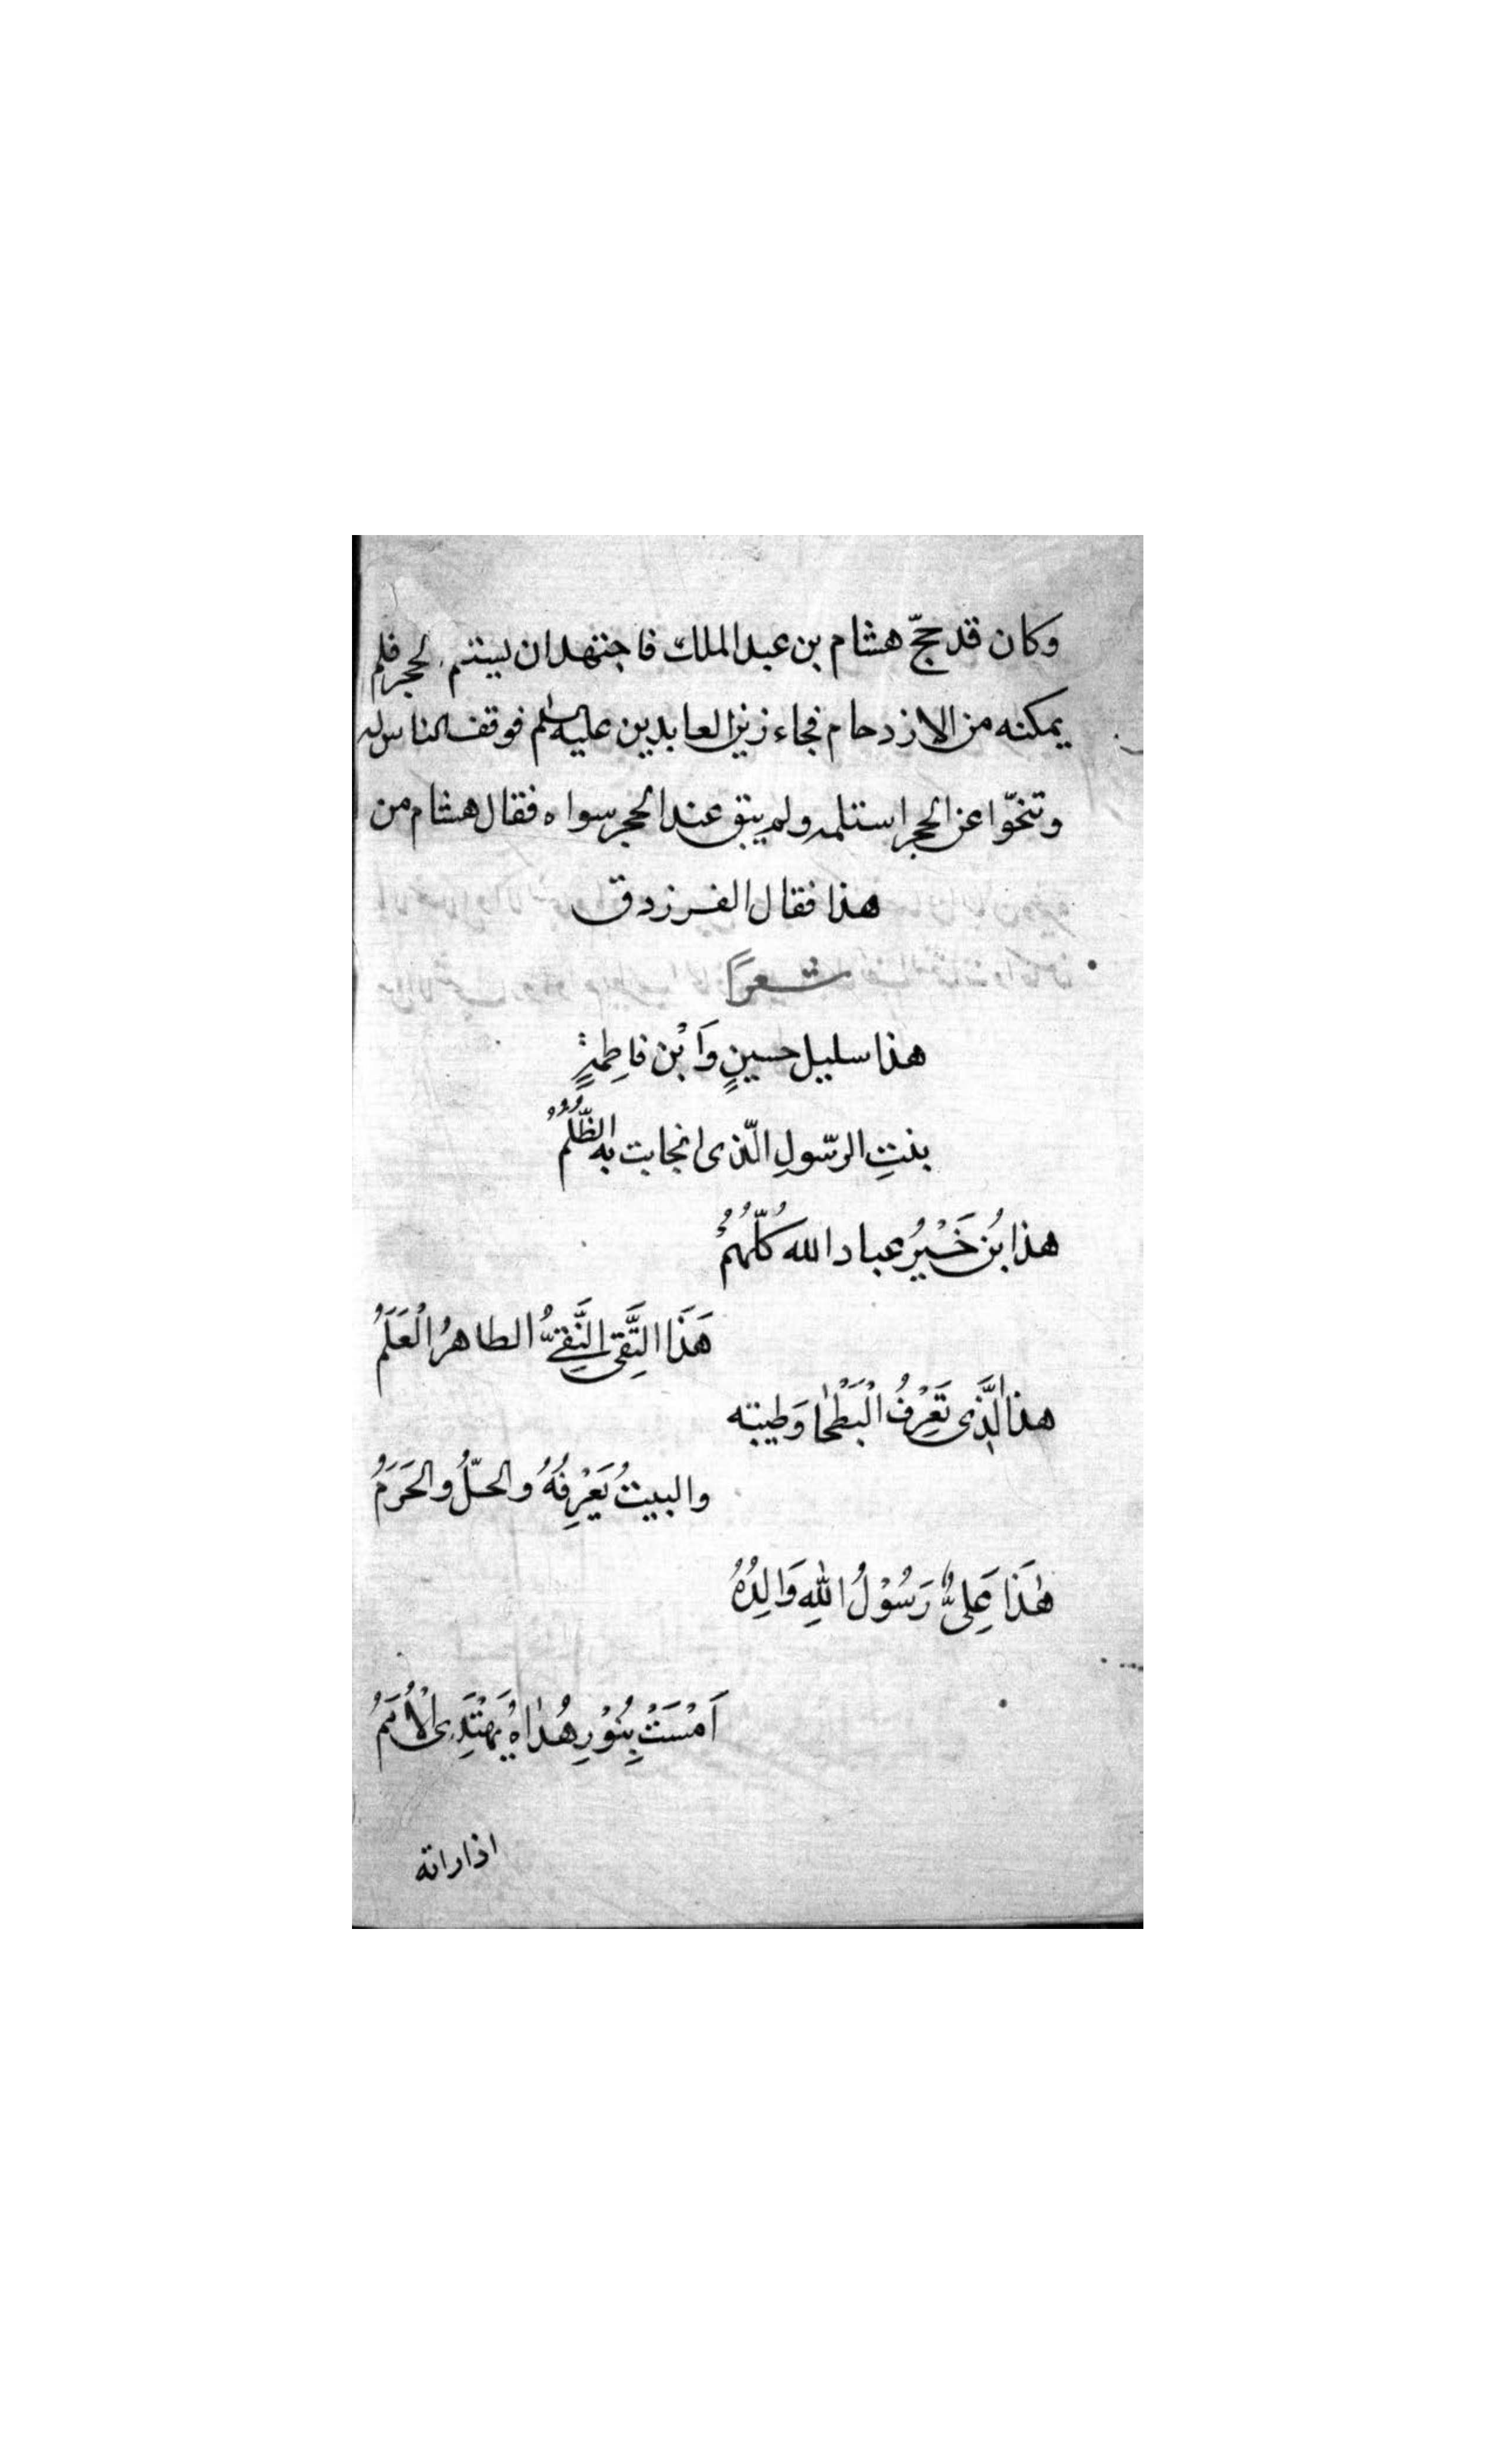 وكان قد حجّ هشام بن عبد الملك فاجتهد ان يستلم الحجر فلم
يمكنه من الازدحام فجاء زين العابدين عليه السلم فوقف الناس له
وتنحّوا عن الحجر استلمه ولم يبق عند الحجر سواه فقال هشام من
هذا فقال الفرزدق
شعرًا
هذا سليل حسينٍ وَابْن فاطِمةٍ
بنتِ الرسّولِ الّذى انجابت به الظُّلُمُ
هذا بُن خَيْرُ عباد الله كُلّهُمُ
هَذَا التَّقِى النَّقِىُّ الطاهرُ الْعَلَمُ
هذا الَّذى تَعْرِفُ الْبَطْحَا وَطيته
والبيتُ يَعْرِفُهُ والحلُّ والحَرَمُ
هٰذَا عَلِىٌّ رَسُوْلُ اللهِ وَالِدُهُ
اَمْسَتْ بِنُوْرِ هُدَاهُ يَهْتَدِى الْاُمَمُ
اذا راته